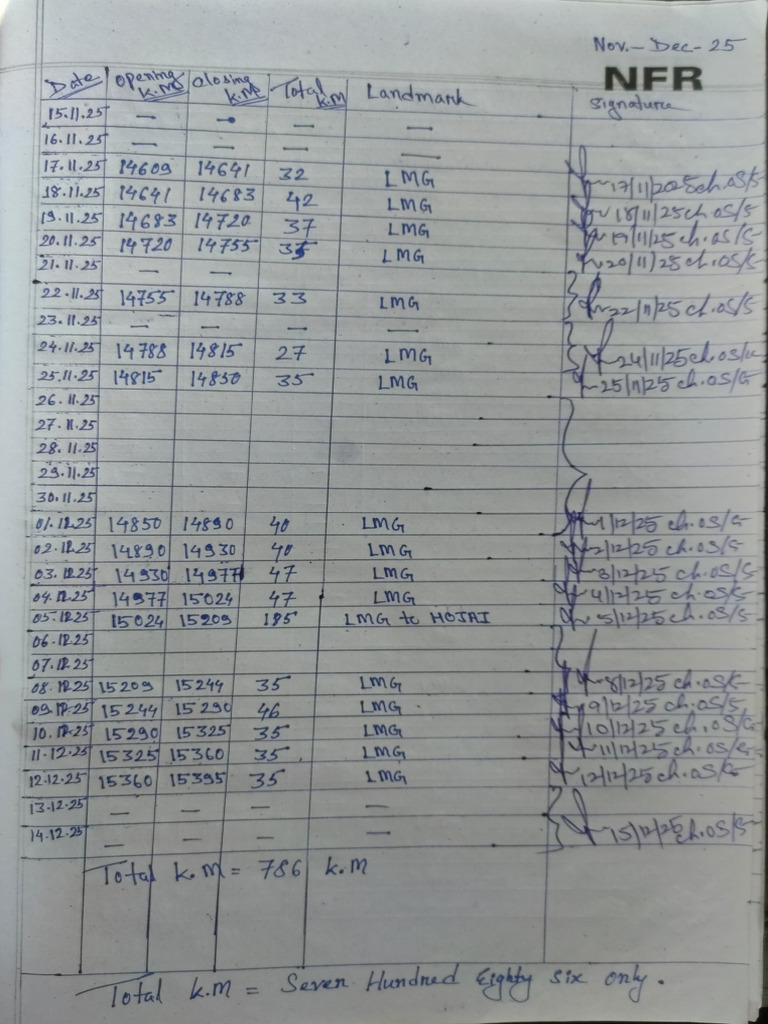 Nov.- Dec- 25
NFR
Date Opening k.m Closing k.m Total k.m Landmark Signature
15.11.25 — — — —
16.11.25 — — — —
17.11.25 14609 14641 32 LMG 17/11/2025 ch.OS/G
18.11.25 14641 14683 42 LMG 18/11/25 ch.OS/G
19.11.25 14683 14720 37 LMG 19/11/25 ch.OS/G
20.11.25 14720 14755 35 LMG 20/11/25 ch.OS/G
21.11.25 — —
22.11.25 14755 14788 33 LMG 22/11/25 ch.OS/G
23.11.25 — — — —
24.11.25 14788 14815 27 LMG 24/11/25 ch.OS/G
25.11.25 14815 14850 35 LMG 25/11/25 ch.OS/G
26.11.25
27.11.25
28.11.25
29.11.25
30.11.25
01.12.25 14850 14890 40 LMG 1/12/25 ch.OS/G
02.12.25 14890 14930 40 LMG 2/12/25 ch.OS/G
03.12.25 14930 14977 47 LMG 3/12/25 ch.OS/G
04.12.25 14977 15024 47 LMG 4/12/25 ch.OS/G
05.12.25 15024 15209 185 LMG to HOJAI 5/12/25 ch.OS/G
06.12.25
07.12.25
08.12.25 15209 15244 35 LMG 8/12/25 ch.OS/G
09.12.25 15244 15290 46 LMG 9/12/25 ch.OS/G
10.12.25 15290 15325 35 LMG 10/12/25 ch.OS/G
11.12.25 15325 15360 35 LMG 11/12/25 ch.OS/G
12.12.25 15360 15395 35 LMG 12/12/25 ch.OS/G
13.12.25 — — — —
14.12.25 — — — — 15/12/25 ch.OS/G
Total k.m = 786 k.m
Total k.m = Seven Hundred Eighty six only.